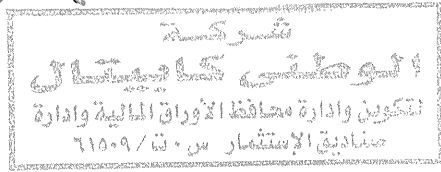 شركة
الوطنى كابيتال
لتكوين وادارة محافظ الأوراق المالية وادارة
صناديق الإستثمار س٠ت/٦١٥٠٩